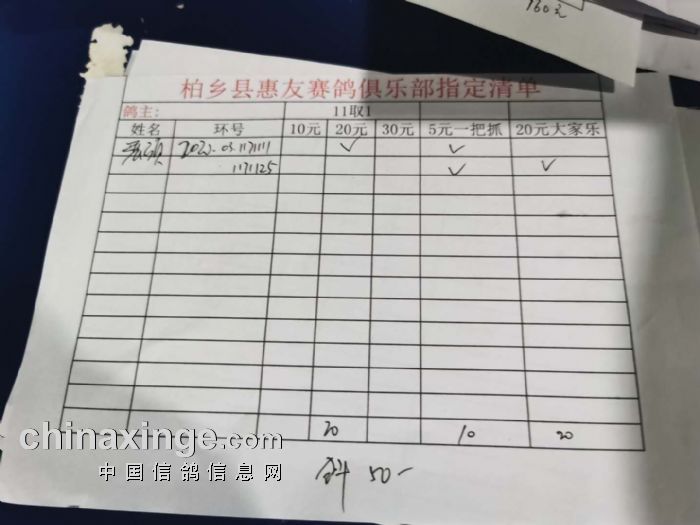 160元
柏乡县惠友赛鸽俱乐部指定清单
鸽主： 11取1
姓名 环号 10元 20元 30元 5元一把抓 20元大家乐
2022.03.1171111 ✓ ✓
1171125 ✓ ✓
20 10 20
chinaxinge.com
中国信鸽信息网
合计 50-